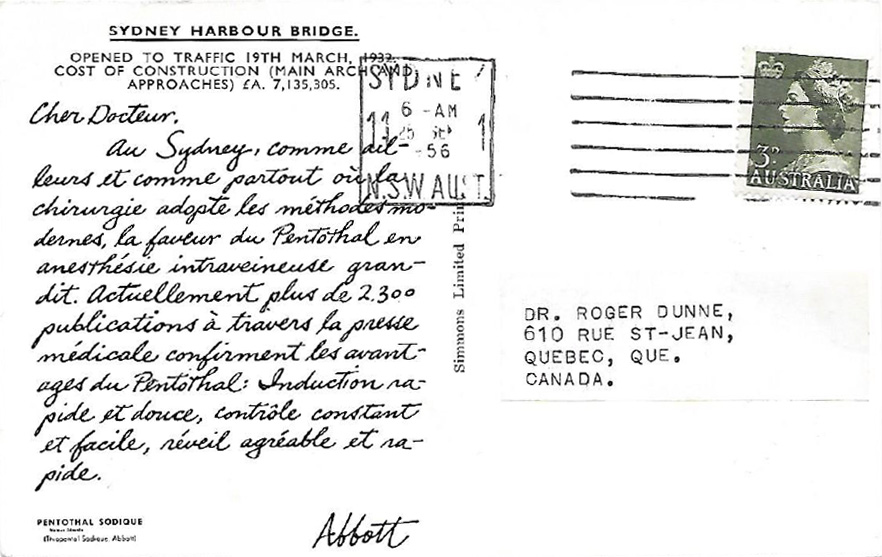 SYDNEY HARBOUR BRIDGE.
OPENED TO TRAFFIC 19TH MARCH, 1932.
COST OF CONSTRUCTION (MAIN ARCH AND
APPROACHES) £A. 7,135,305.
Cher Docteur,
Au Sydney, comme ail-
leurs et comme partout où la
chirurgie adopte les méthodes mo-
dernes, la faveur du Pentothal en
anesthésie intraveineuse gran-
dit. Actuellement plus de 2,300
publications à travers la presse
médicale confirment les avant-
ages du Pentothal: Induction ra-
pide et douce, contrôle constant
et facile, réveil agréable et ra-
pide.
Abbott
PENTOTHAL SODIQUE
(Thiopental Sodique, Abbott)
Simmons Limited
SYDNEY
6 -AM
11 25 SEP 1
-56
N.S.W AUST.
3D
AUSTRALIA
DR. ROGER DUNNE,
610 RUE ST-JEAN,
QUEBEC, QUE.
CANADA.